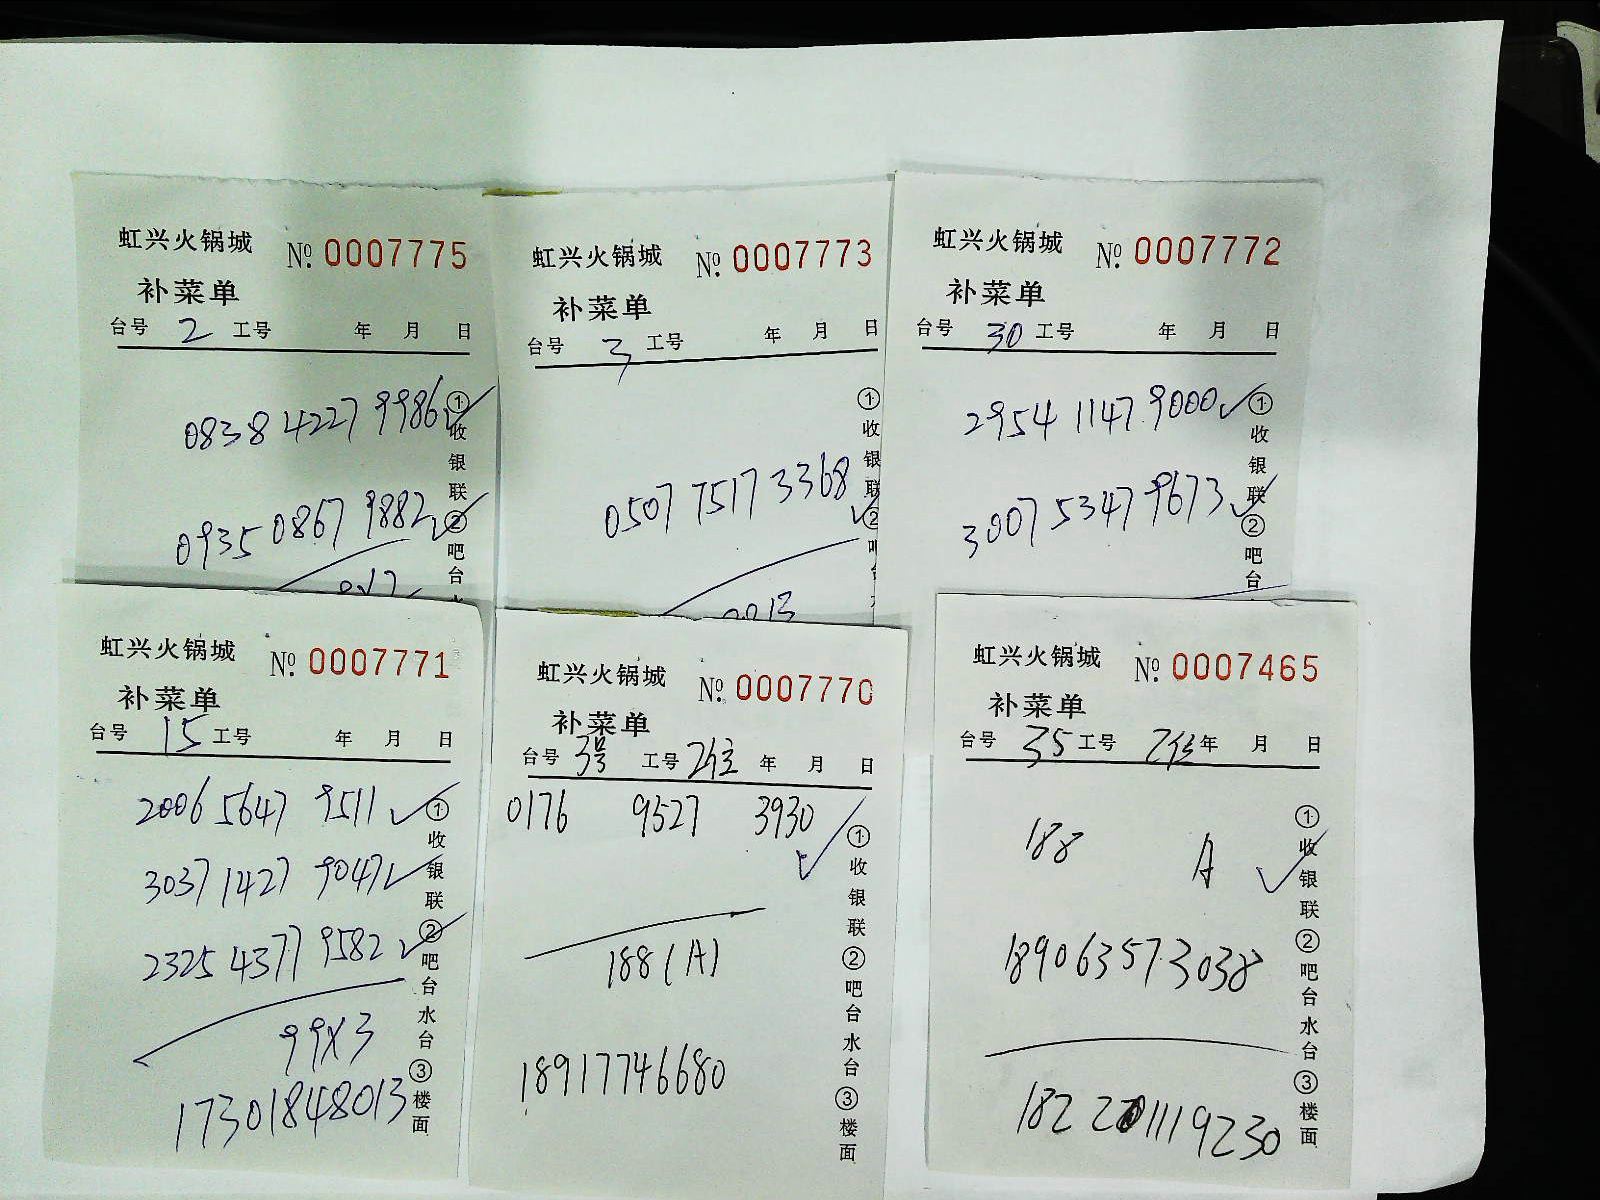 虹兴火锅城 №. 0007775
补菜单
台号 2 工号 年 月 日
0838 4227 9986
0935 0867 9882
①收银联②吧台
虹兴火锅城 №. 0007773
补菜单
台号 3 工号 年 月 日
0507 7517 3368
①收银联②吧
虹兴火锅城 №. 0007772
补菜单
台号 30 工号 年 月 日
2954 1147 9000
3007 5347 9673
①收银联②吧台
虹兴火锅城 №. 0007771
补菜单
台号 15 工号 年 月 日
2006 5647 9511
3037 1427 9047
2325 4377 9582
99X3
17301848013
①收银联②吧台水台③楼面
虹兴火锅城 №. 0007770
补菜单
台号 3号 工号 年 月 日
0176 9527 3930
188(A)
18917746680
①收银联②吧台水台③楼面
虹兴火锅城 №. 0007465
补菜单
台号 35 工号 年 月 日
188 A
189063573038
①收银联②吧台水台③楼面